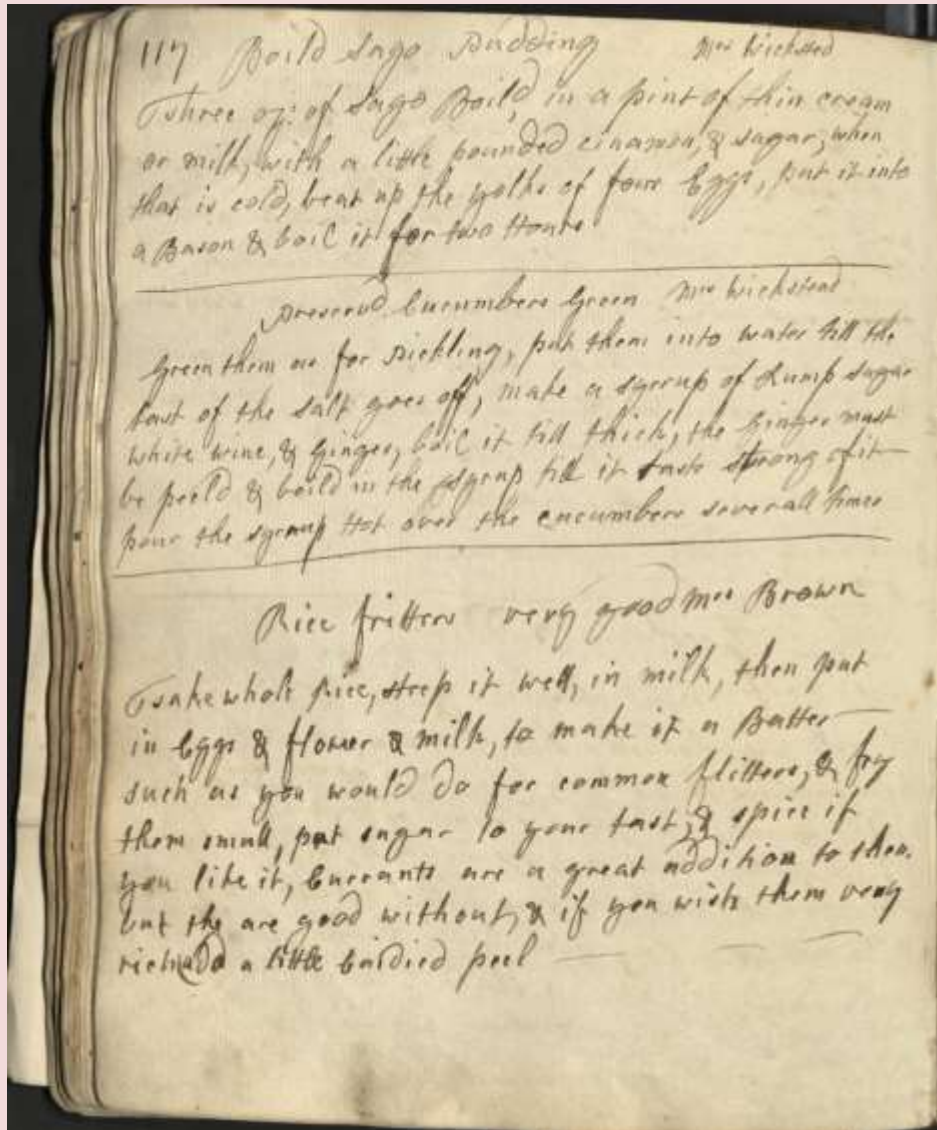 117 Boild Sago Pudding Mrs Wicksted
Three oz: of Sago Boild, in a pint of thin cream
or milk, with a little pounded cinamon, & sugar, when
that is cold, beat up the yolks of four Eggs, put it into
a Bason & boil it for two Hours
preservd Cucumbers Green Mrs Wickstead
Green them as for pickling, put them into water till the
tast of the salt goes off, make a syrup of Lump sugar
white wine, & Ginger, boil it till thick, the Ginger must
be peeld & boild in the syrup till it tasts strong of it
pour the syrup Hot over the cucumbers severall times
Rice fritters very good Mrs Brown
Take whole Rice, steep it well, in milk, then put
in Eggs & flower & milk, to make it a Batter
such as you would do for common flitters, & fry
them small, put sugar to your tast, & spice if
you like it, Currants are a great addition to them
but thy are good without, & if you wish them very
rich add a little Candied peel